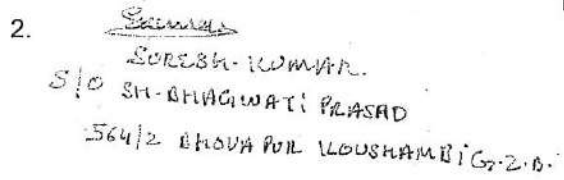 2.
SURESH-KUMAR.
S/O SH-BHAGWATI PRASAD
564/2 BHOVAPUR KOUSHAMBI G.Z.B.